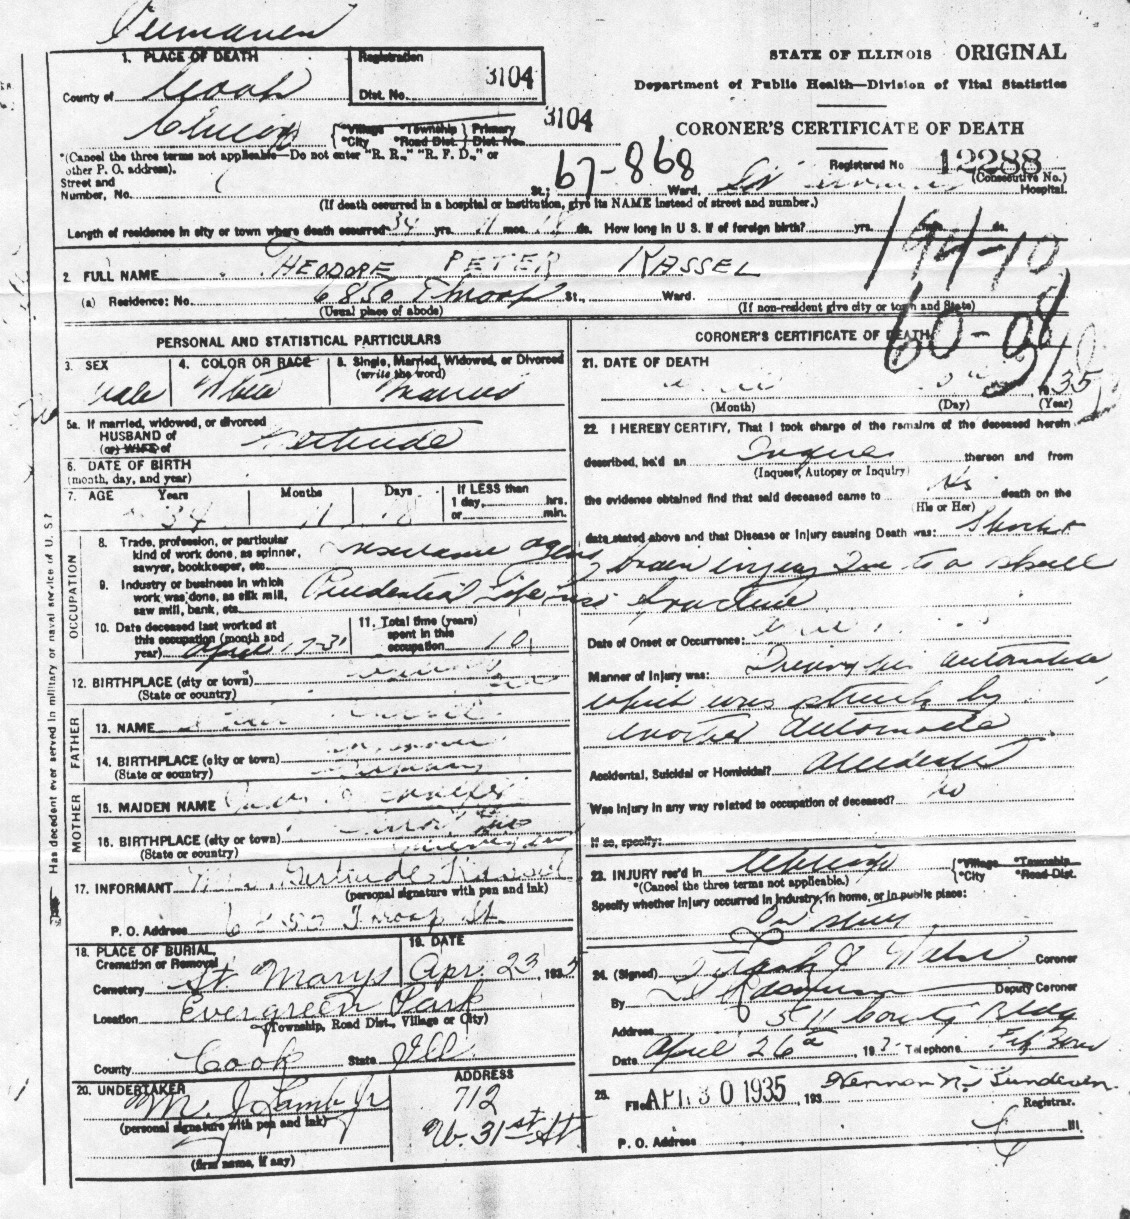 Permanent
1. PLACE OF DEATH
Registration
Dist. No. 3104
STATE OF ILLINOIS ORIGINAL
Department of Public Health—Division of Vital Statistics
County of Cook
CORONER'S CERTIFICATE OF DEATH
Chicago {*Village *Township} Primary 3104
{*City *Road Dist.} Dist. No.
*(Cancel the three terms not applicable—Do not enter "R. R.," "R. F. D.," or
other P. O. address).
67-868
Registered No 12288
(Consecutive No.)
Street and
Number, No. St.; Ward, Hospital.
(If death occurred in a hospital or institution, give its NAME instead of street and number.)
Length of residence in city or town where death occurred 34 yrs. 11 mos. 18 ds. How long in U. S. if of foreign birth? yrs. mos. ds.
194-10
2. FULL NAME THEODORE PETER KASSEL
(a) Residence: No. 6850 Throop St., Ward.
(Usual place of abode) (If non-resident give city or town and State)
60-08
PERSONAL AND STATISTICAL PARTICULARS
3. SEX
male
4. COLOR OR RACE
White
5. Single, Married, Widowed, or Divorced
(write the word)
Married
5a. If married, widowed, or divorced
HUSBAND of
(or) WIFE of Gertrude
6. DATE OF BIRTH
(month, day, and year)
7. AGE Years Months Days If LESS than
1 day, hrs.
or min.
34 11 18
OCCUPATION
8. Trade, profession, or particular
kind of work done, as spinner,
sawyer, bookkeeper, etc. Insurance Agent
9. Industry or business in which
work was done, as silk mill,
saw mill, bank, etc. Prudential Life Ins
10. Date deceased last worked at
this occupation (month and
year) April 17-31
11. Total time (years)
spent in this
occupation 10
12. BIRTHPLACE (city or town)
(State or country)
FATHER
13. NAME
14. BIRTHPLACE (city or town)
(State or country) Germany
MOTHER
15. MAIDEN NAME
16. BIRTHPLACE (city or town)
(State or country)
17. INFORMANT Mrs. Gertrude Kassel
(personal signature with pen and ink)
P. O. Address 6850 Throop St.
18. PLACE OF BURIAL,
Cremation or Removal
Cemetery St. Marys
19. DATE
Apr. 23 1935
Location Evergreen Park
(Township, Road Dist., Village or City)
County Cook State Ill.
20. UNDERTAKER
M. J. Lamb Jr
(personal signature with pen and ink)
(firm name, if any)
ADDRESS
712
W. 31st St
Has decedent ever served in military or naval service of U. S.?
CORONER'S CERTIFICATE OF DEATH
21. DATE OF DEATH
1935
(Month) (Day) (Year)
22. I HEREBY CERTIFY, That I took charge of the remains of the deceased herein
described, held an Inquest thereon and from
(Inquest, Autopsy or Inquiry)
the evidence obtained find that said deceased came to his death on the
(His or Her)
date stated above and that Disease or Injury causing Death was: Shock &
brain injury due to a skull
fracture
Date of Onset or Occurrence:
Manner of Injury was: Driving his automobile
which was struck by
another automobile
Accidental, Suicidal or Homicidal? Accident
Was injury in any way related to occupation of deceased? no
If so, specify:
23. INJURY rec'd in Chicago {*Village *Township
*(Cancel the three terms not applicable.) {*City *Road Dist.
Specify whether injury occurred in industry, in home, or in public place:
24. (Signed) Frank J. Walsh Coroner
By Deputy Coroner
Address 511 County Bldg
Date April 26th, 193 Telephone
25. Filed APR 30 1935, 193 Herman N. Bundesen
Registrar.
P. O. Address Ill